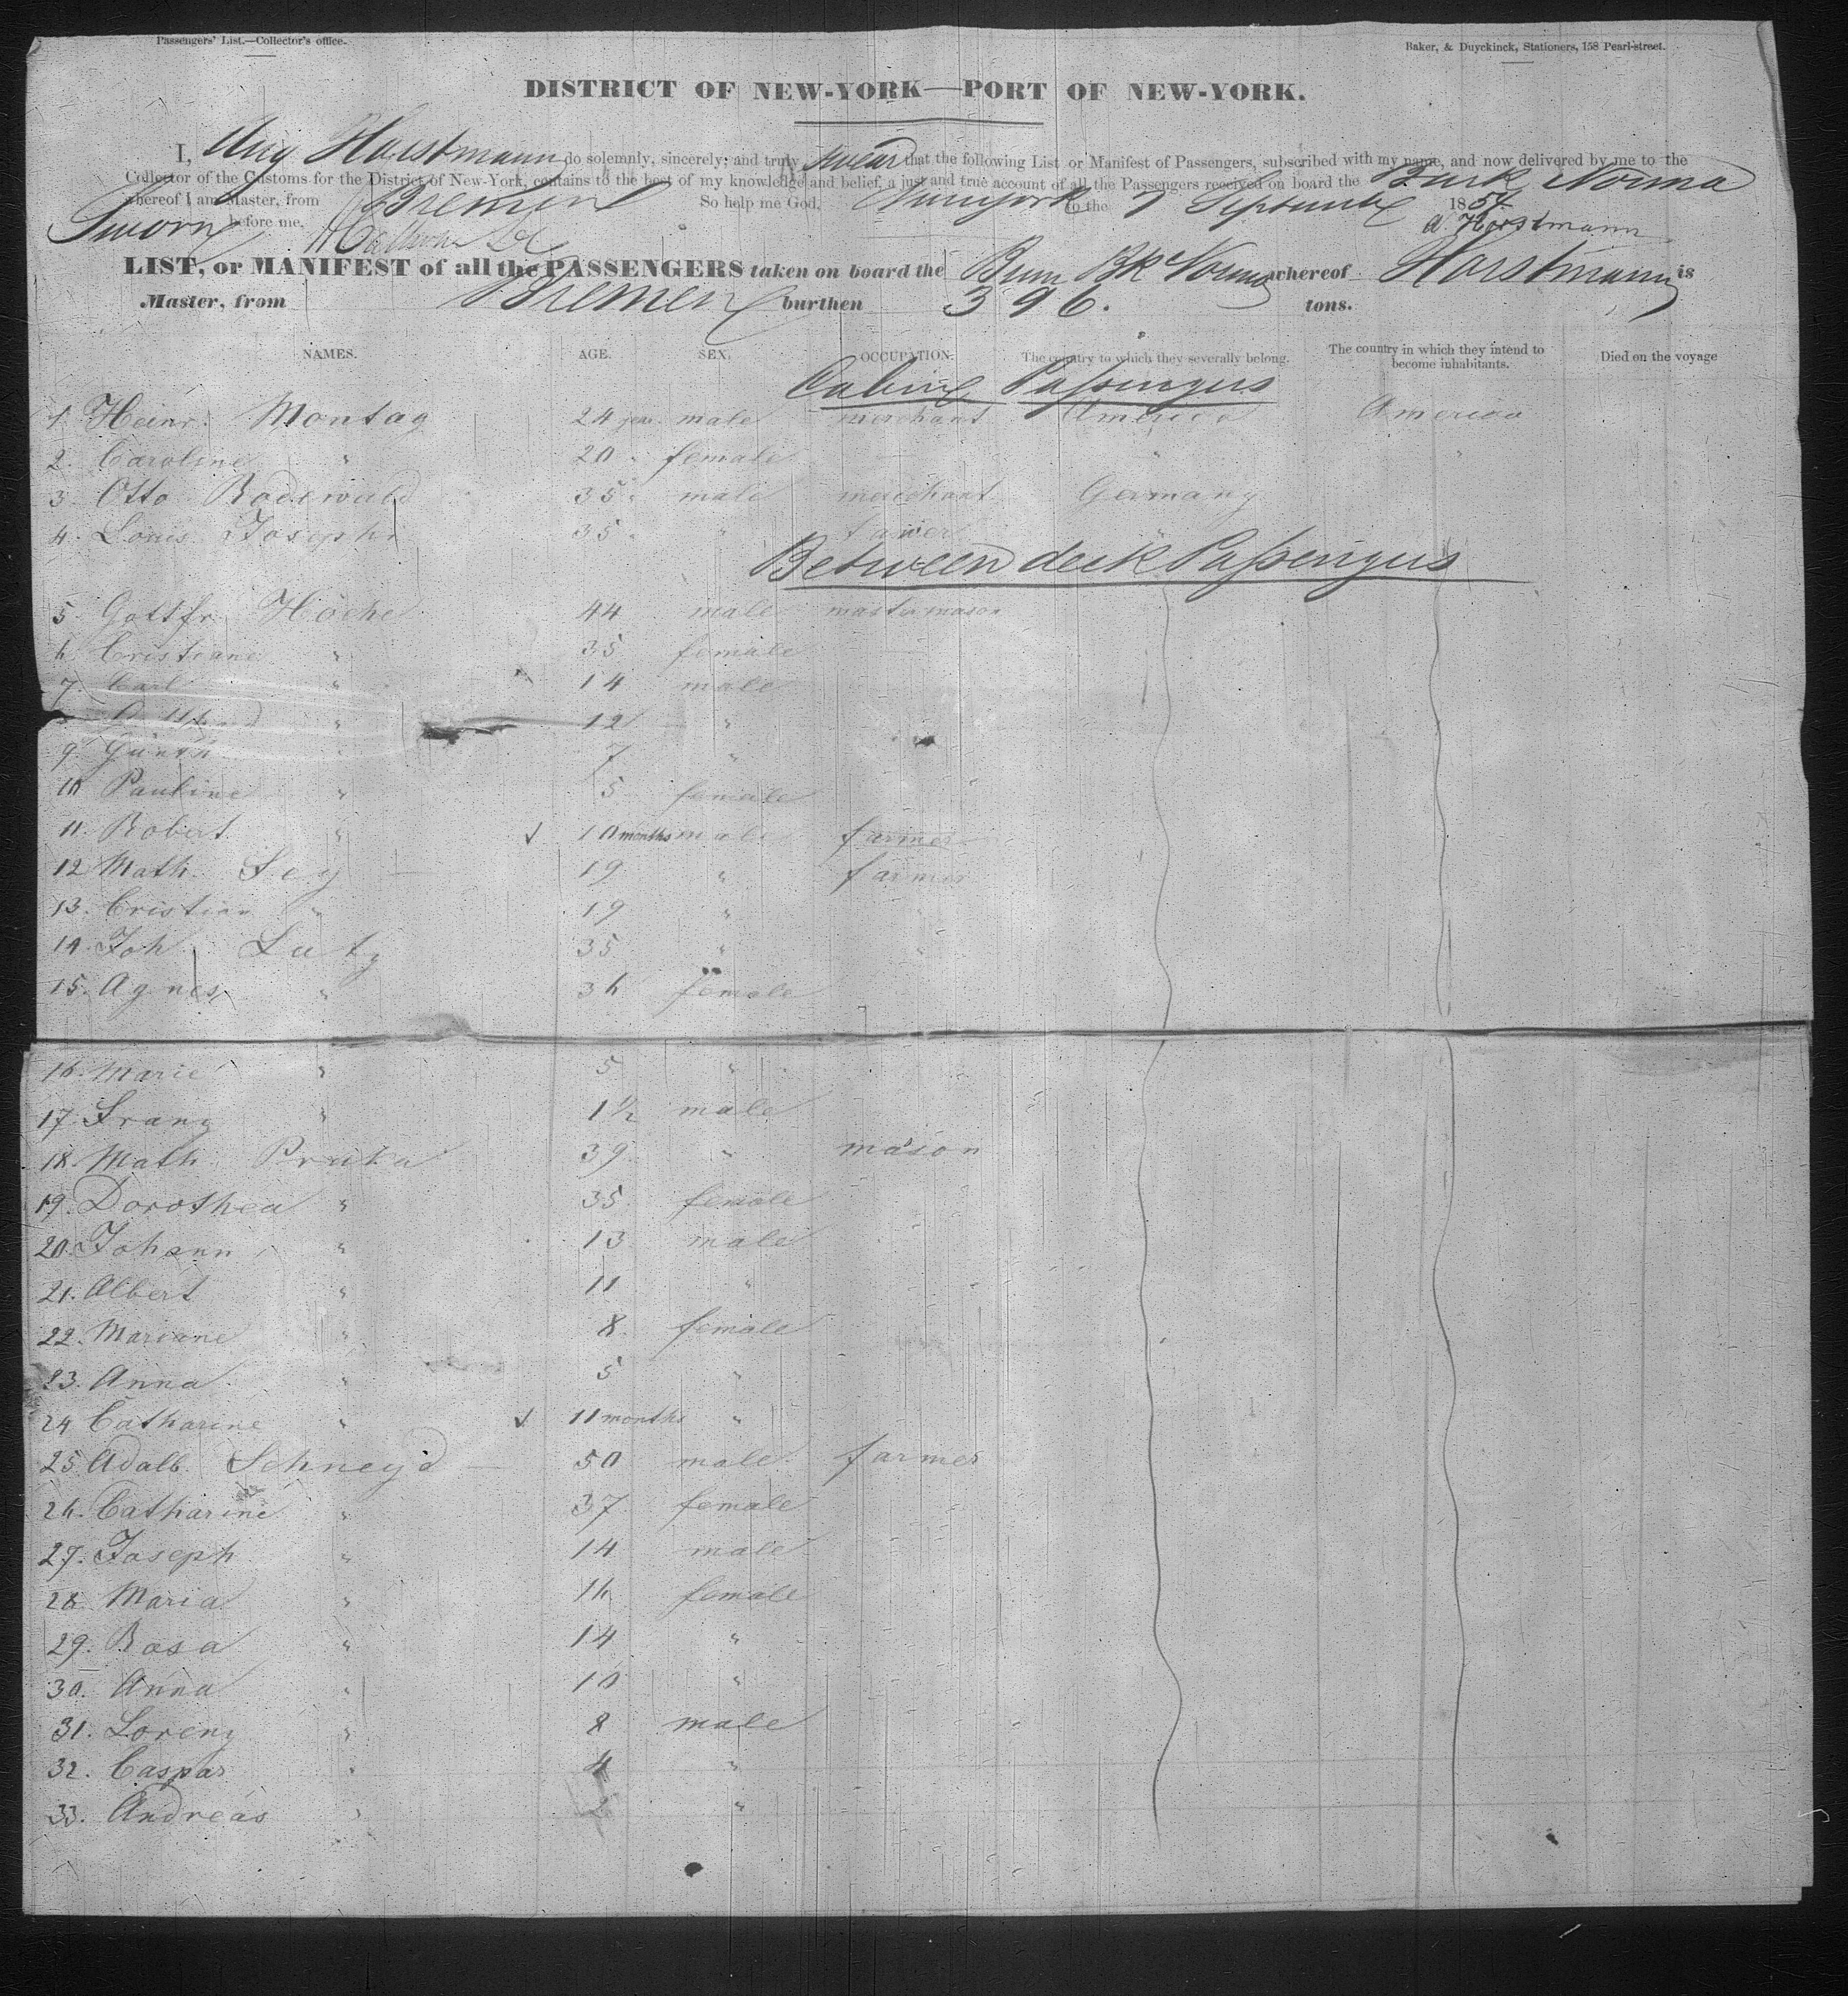 Passengers' List.—Collector's office.
Baker, & Duyckinck, Stationers, 158 Pearl-street.
DISTRICT OF NEW-YORK—PORT OF NEW-YORK.
I, Aug Horstmann do solemnly, sincerely, and truly swear that the following List or Manifest of Passengers, subscribed with my name, and now delivered by me to the
Collector of the Customs for the District of New-York, contains to the best of my knowledge and belief, a just and true account of all the Passengers received on board the Bark Norma
whereof I am Master, from Bremen So help me God. Newyork to the 7 September 185
Sworn before me, A. Horstmann
LIST, or MANIFEST of all the PASSENGERS taken on board the Brem Bk Norma whereof Horstmann is
Master, from Bremen burthen 396. tons.
NAMES. AGE. SEX. OCCUPATION. The country to which they severally belong. The country in which they intend to become inhabitants. Died on the voyage
Cabin Passengers
1 Heinr. Montag 24 male merchant America America
2. Caroline " 20 " female " "
3 Otto Bodewald 35 " male merchant Germany
4. Louis Josephs 35 " " "
Between deck Passengers
5 Gottfr Hoche 44 male master mason
6 Cristiane " 35 female
7 Carl " 14 male
" 12 "
9 " 7 "
10 Pauline " 5 female
11. Robert " 10 months male farmer
12 Math. Sey 19 " farmer
13. Cristian " 19 " "
14. Joh Lutz 35 " "
15. Agnes " 36 female
16. Marie " 5 "
17. Franz " 1½ male
18. Math. Pruka 39 " mason
19. Dorothea " 35 female
20. Johann " 13 male
21. Albert " 11 "
22. Mariane " 8 female
23. Anna " 5 "
24 Catharine " 11 months "
25 Adalb. Schneyd 50 male farmer
26. Catharine " 37 female
27. Joseph " 14 male
28. Maria " 16 female
29. Rosa " 14 "
30. Anna " 10 "
31. Lorenz " 8 male
32. Caspar " 4 "
33. Andreas " "